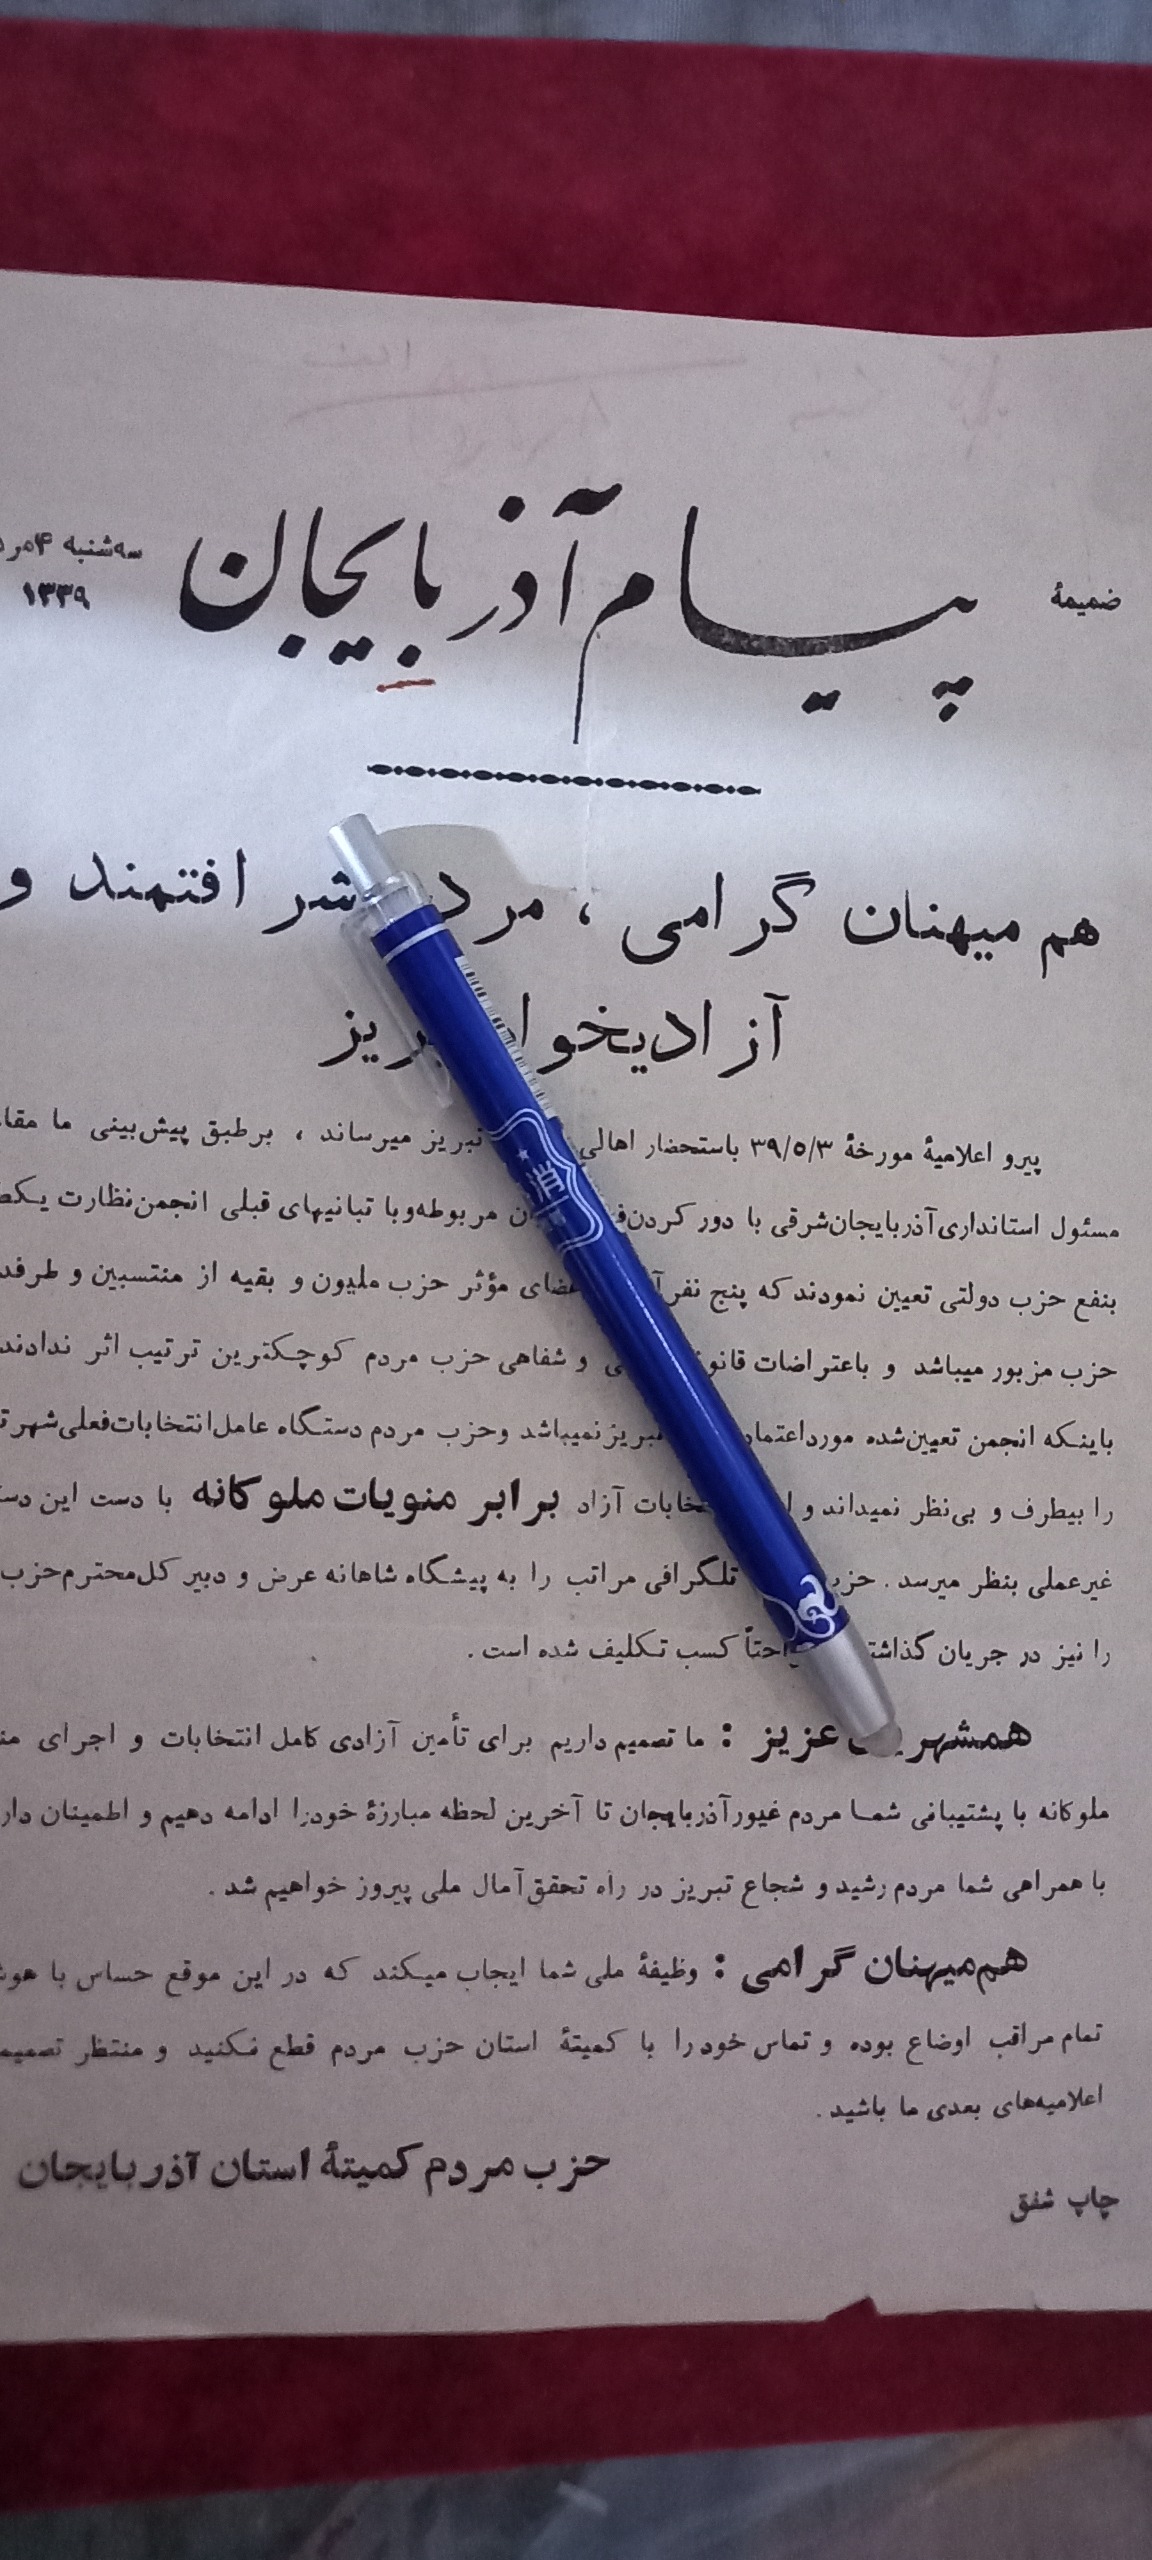 ضمیمهٔ
پیام آذربایجان
سه‌شنبه ۴
۱۳۳۹
هم میهنان گرامی ، شرافتمند و
پیرو اعلامیهٔ مورخهٔ ۳۹/۵/۳ باستحضار اهالی تبریز میرساند ، برطبق پیش‌بینی ما
مسئول استانداری آذربایجان‌شرقی با دور کردن مربوطه وبا تبانیهای قبلی انجمن نظارت
بنفع حزب دولتی تعیین نمودند که پنج نفر مؤثر حزب ملیون و بقیه از منتسبین و
حزب مزبور میباشد و باعتراضات و شفاهی حزب مردم کوچکترین ترتیب اثر ندادند
باینکه انجمن تعیین‌شده مورد نمیباشد وحزب مردم دستگاه عامل انتخابات فعلی شهر
را بیطرف و بی‌نظر نمیداند و آزاد برابر منویات ملوکانه با دست این
غیرعملی بنظر میرسد . تلگرافی مراتب را به پیشگاه شاهانه عرض و دبیر کل محترم حزب
را نیز در جریان کسب تکلیف شده است .
عزیز : ما تصمیم داریم برای تأمین آزادی کامل انتخابات و اجرای
ملوکانه با پشتیبانی شما مردم غیور آذربایجان تا آخرین لحظه مبارزهٔ خودرا ادامه دهیم و اطمینان
با همراهی شما مردم رشید و شجاع تبریز در راه تحقق آمال ملی پیروز خواهیم شد .
هم‌میهنان گرامی : وظیفهٔ ملی شما ایجاب میکند که در این موقع حساس با
تمام مراقب اوضاع بوده و تماس خود را با کمیتهٔ استان حزب مردم قطع نکنید و منتظر
اعلامیه‌های بعدی ما باشید .
حزب مردم کمیتهٔ استان آذربایجان
چاپ شفق